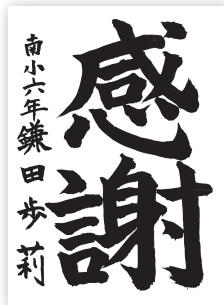 感謝
南小六年鎌田歩莉